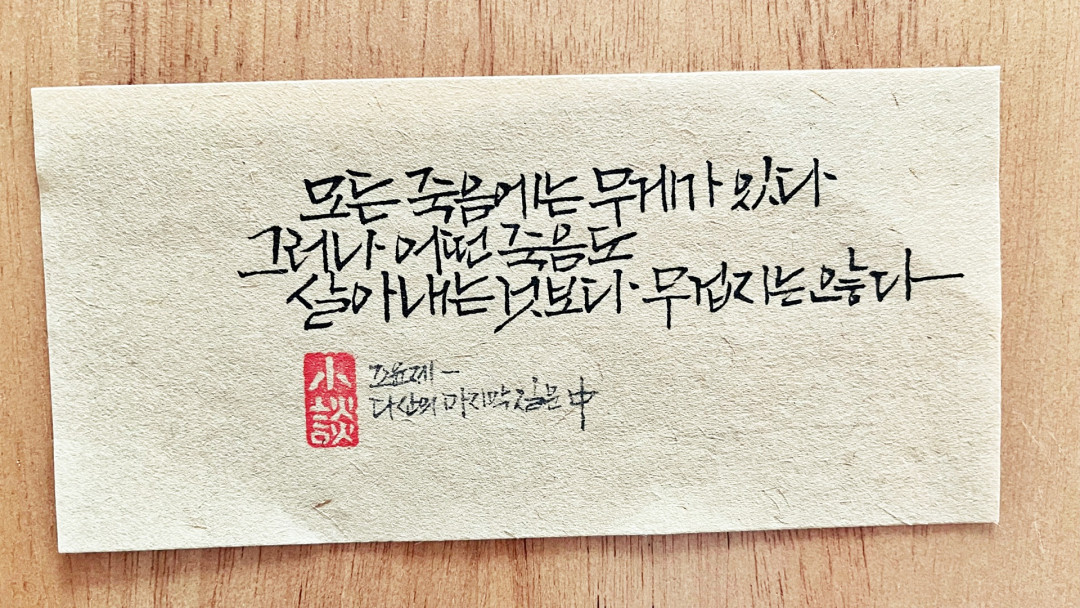 모든 죽음에는 무게가 있다
그러나 어떤 죽음도
살아내는 것보다 무겁지는 않다
小談
조윤제
다산의 마지막 질문 中